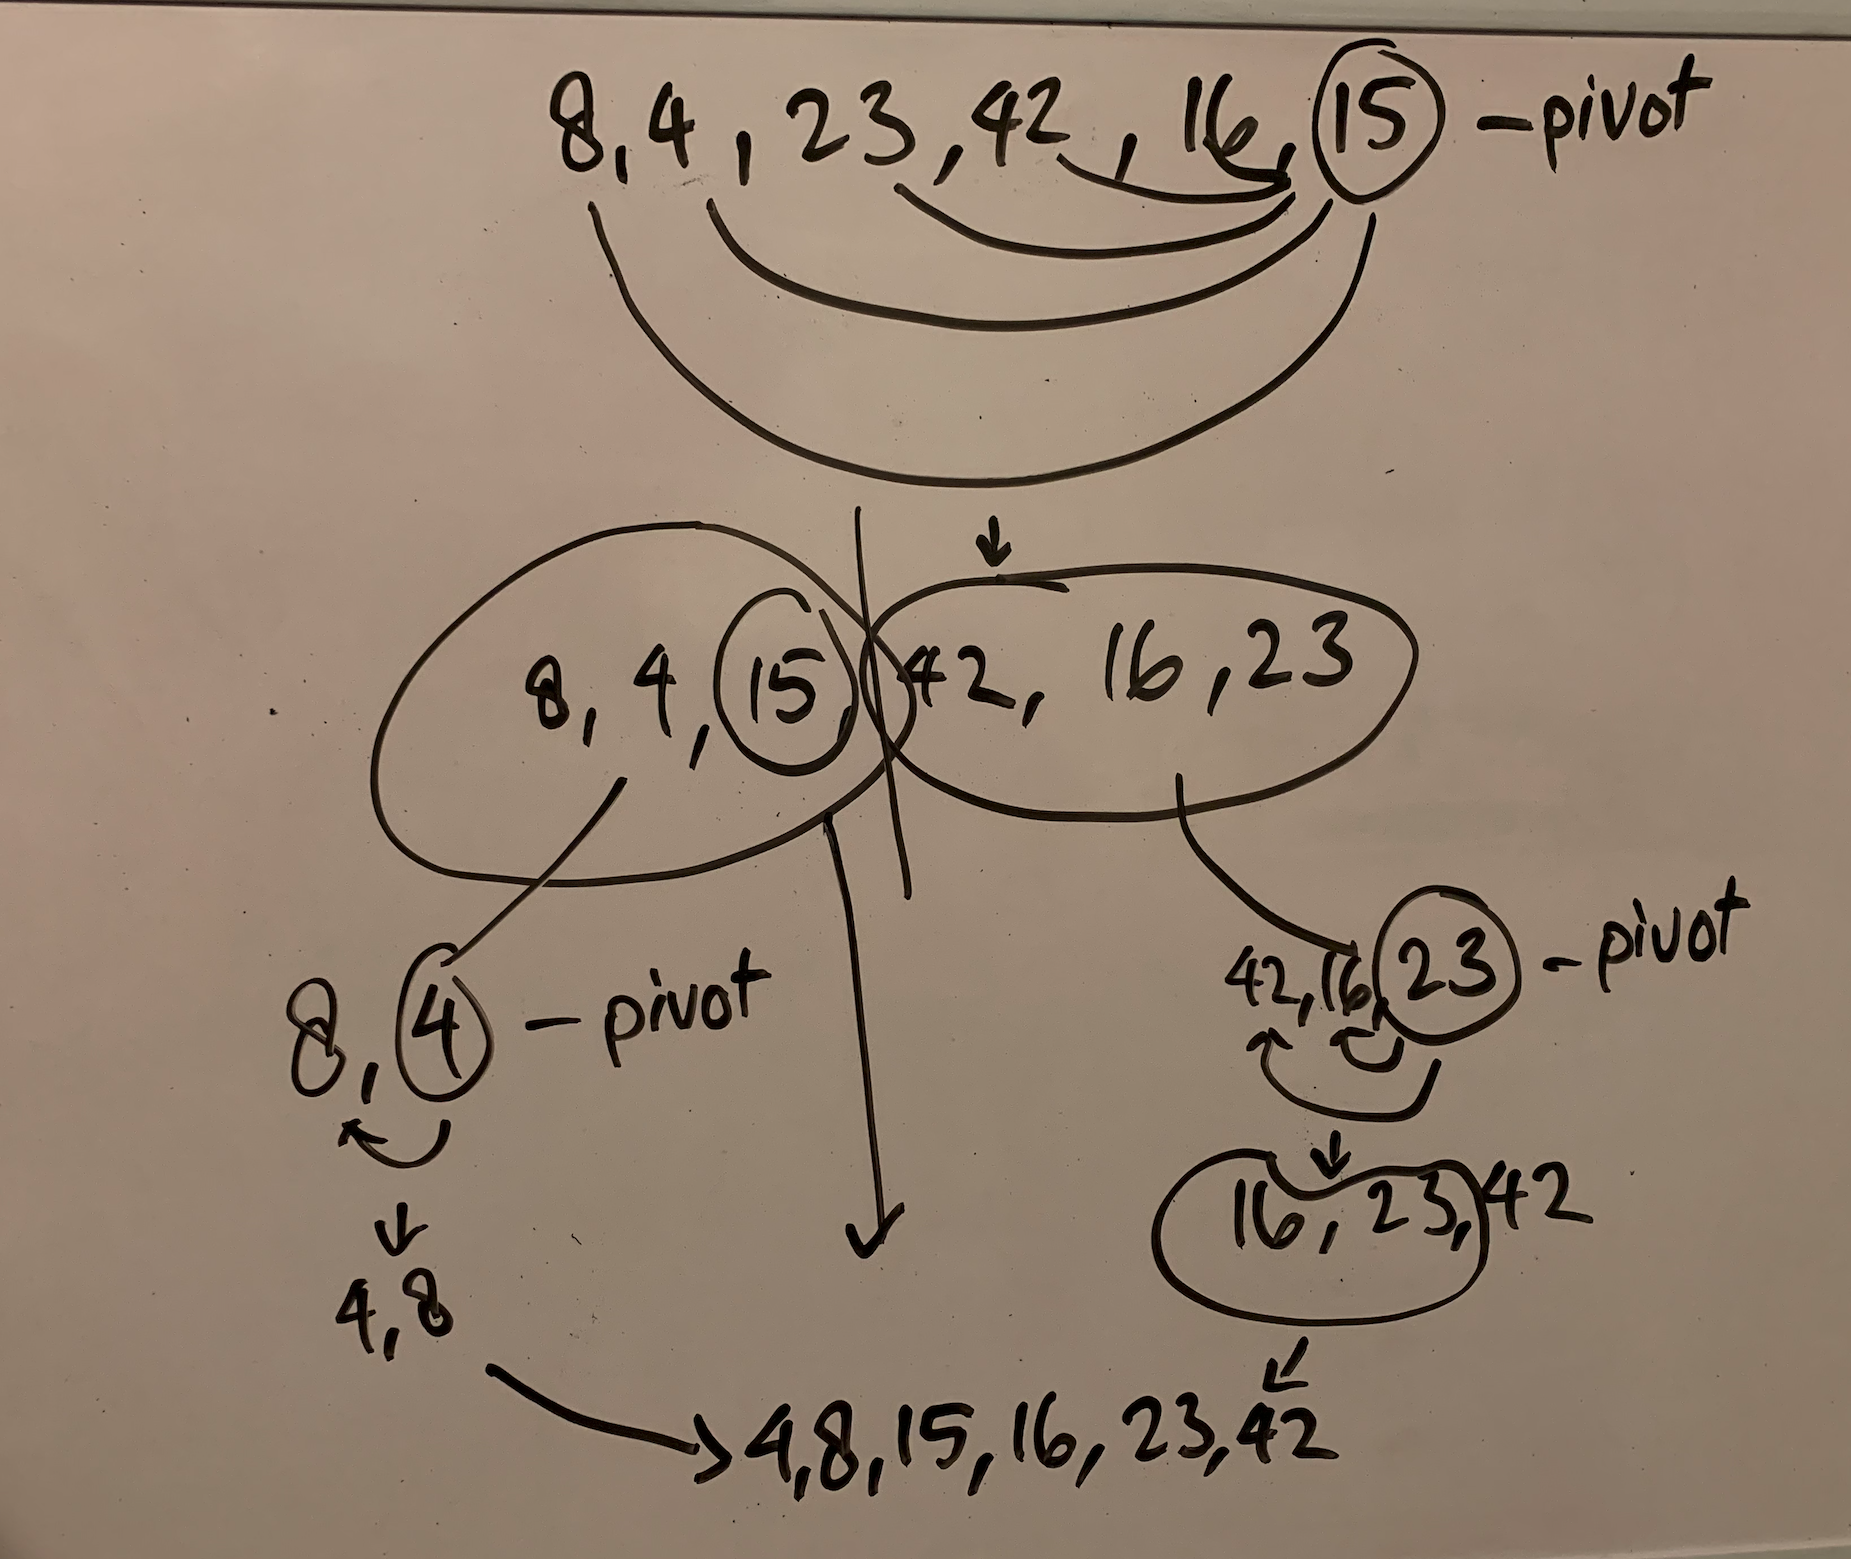 8, 4, 23, 42, 16, 15 - pivot
8, 4, 15, 42, 16, 23
8, 4 - pivot
42, 16, 23 - pivot
16, 23, 42
4, 8
4, 8, 15, 16, 23, 42